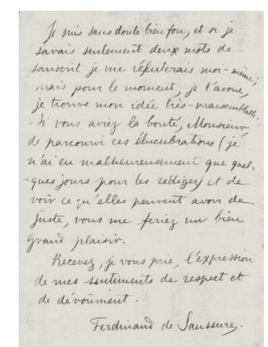 Je suis sans doute bien fou, et si je
savais seulement deux mots de
sanscrit je me réfuterais moi-même;
mais pour le moment, je l'avoue,
je trouve mon idée très-vraisemblable.
Si vous aviez la bonté, Monsieur,
de parcourir ces élucubrations (je
n'ai eu malheureusement que quel-
ques jours pour les rédiger) et de
voir ce qu'elles peuvent avoir de
juste, vous me feriez un bien
grand plaisir.
Recevez, je vous prie, l'expression
de mes sentiments de respect et
de dévouement.
Ferdinand de Saussure.